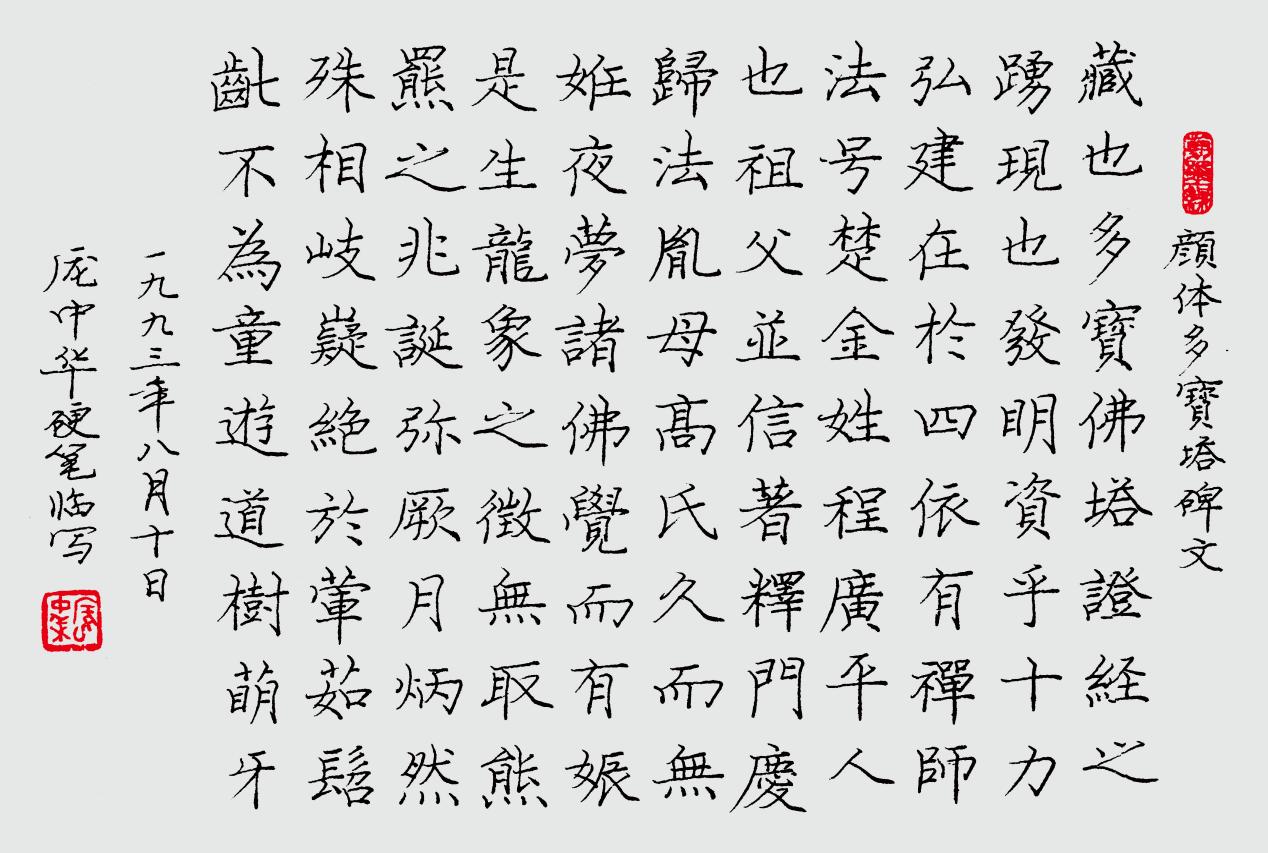 顔体多寶塔碑文
藏也多寶佛塔證経之
踴現也發明資乎十力
弘建在於四依有禪師
法号楚金姓程廣平人
也祖父並信著釋門慶
歸法胤母髙氏久而無
姙夜夢諸佛覺而有娠
是生龍象之徴無取熊
羆之兆誕弥厥月炳然
殊相岐嶷絶於葷茹髫
齔不為童遊道樹萌牙
一九九三年八月十日
庞中华硬笔临写